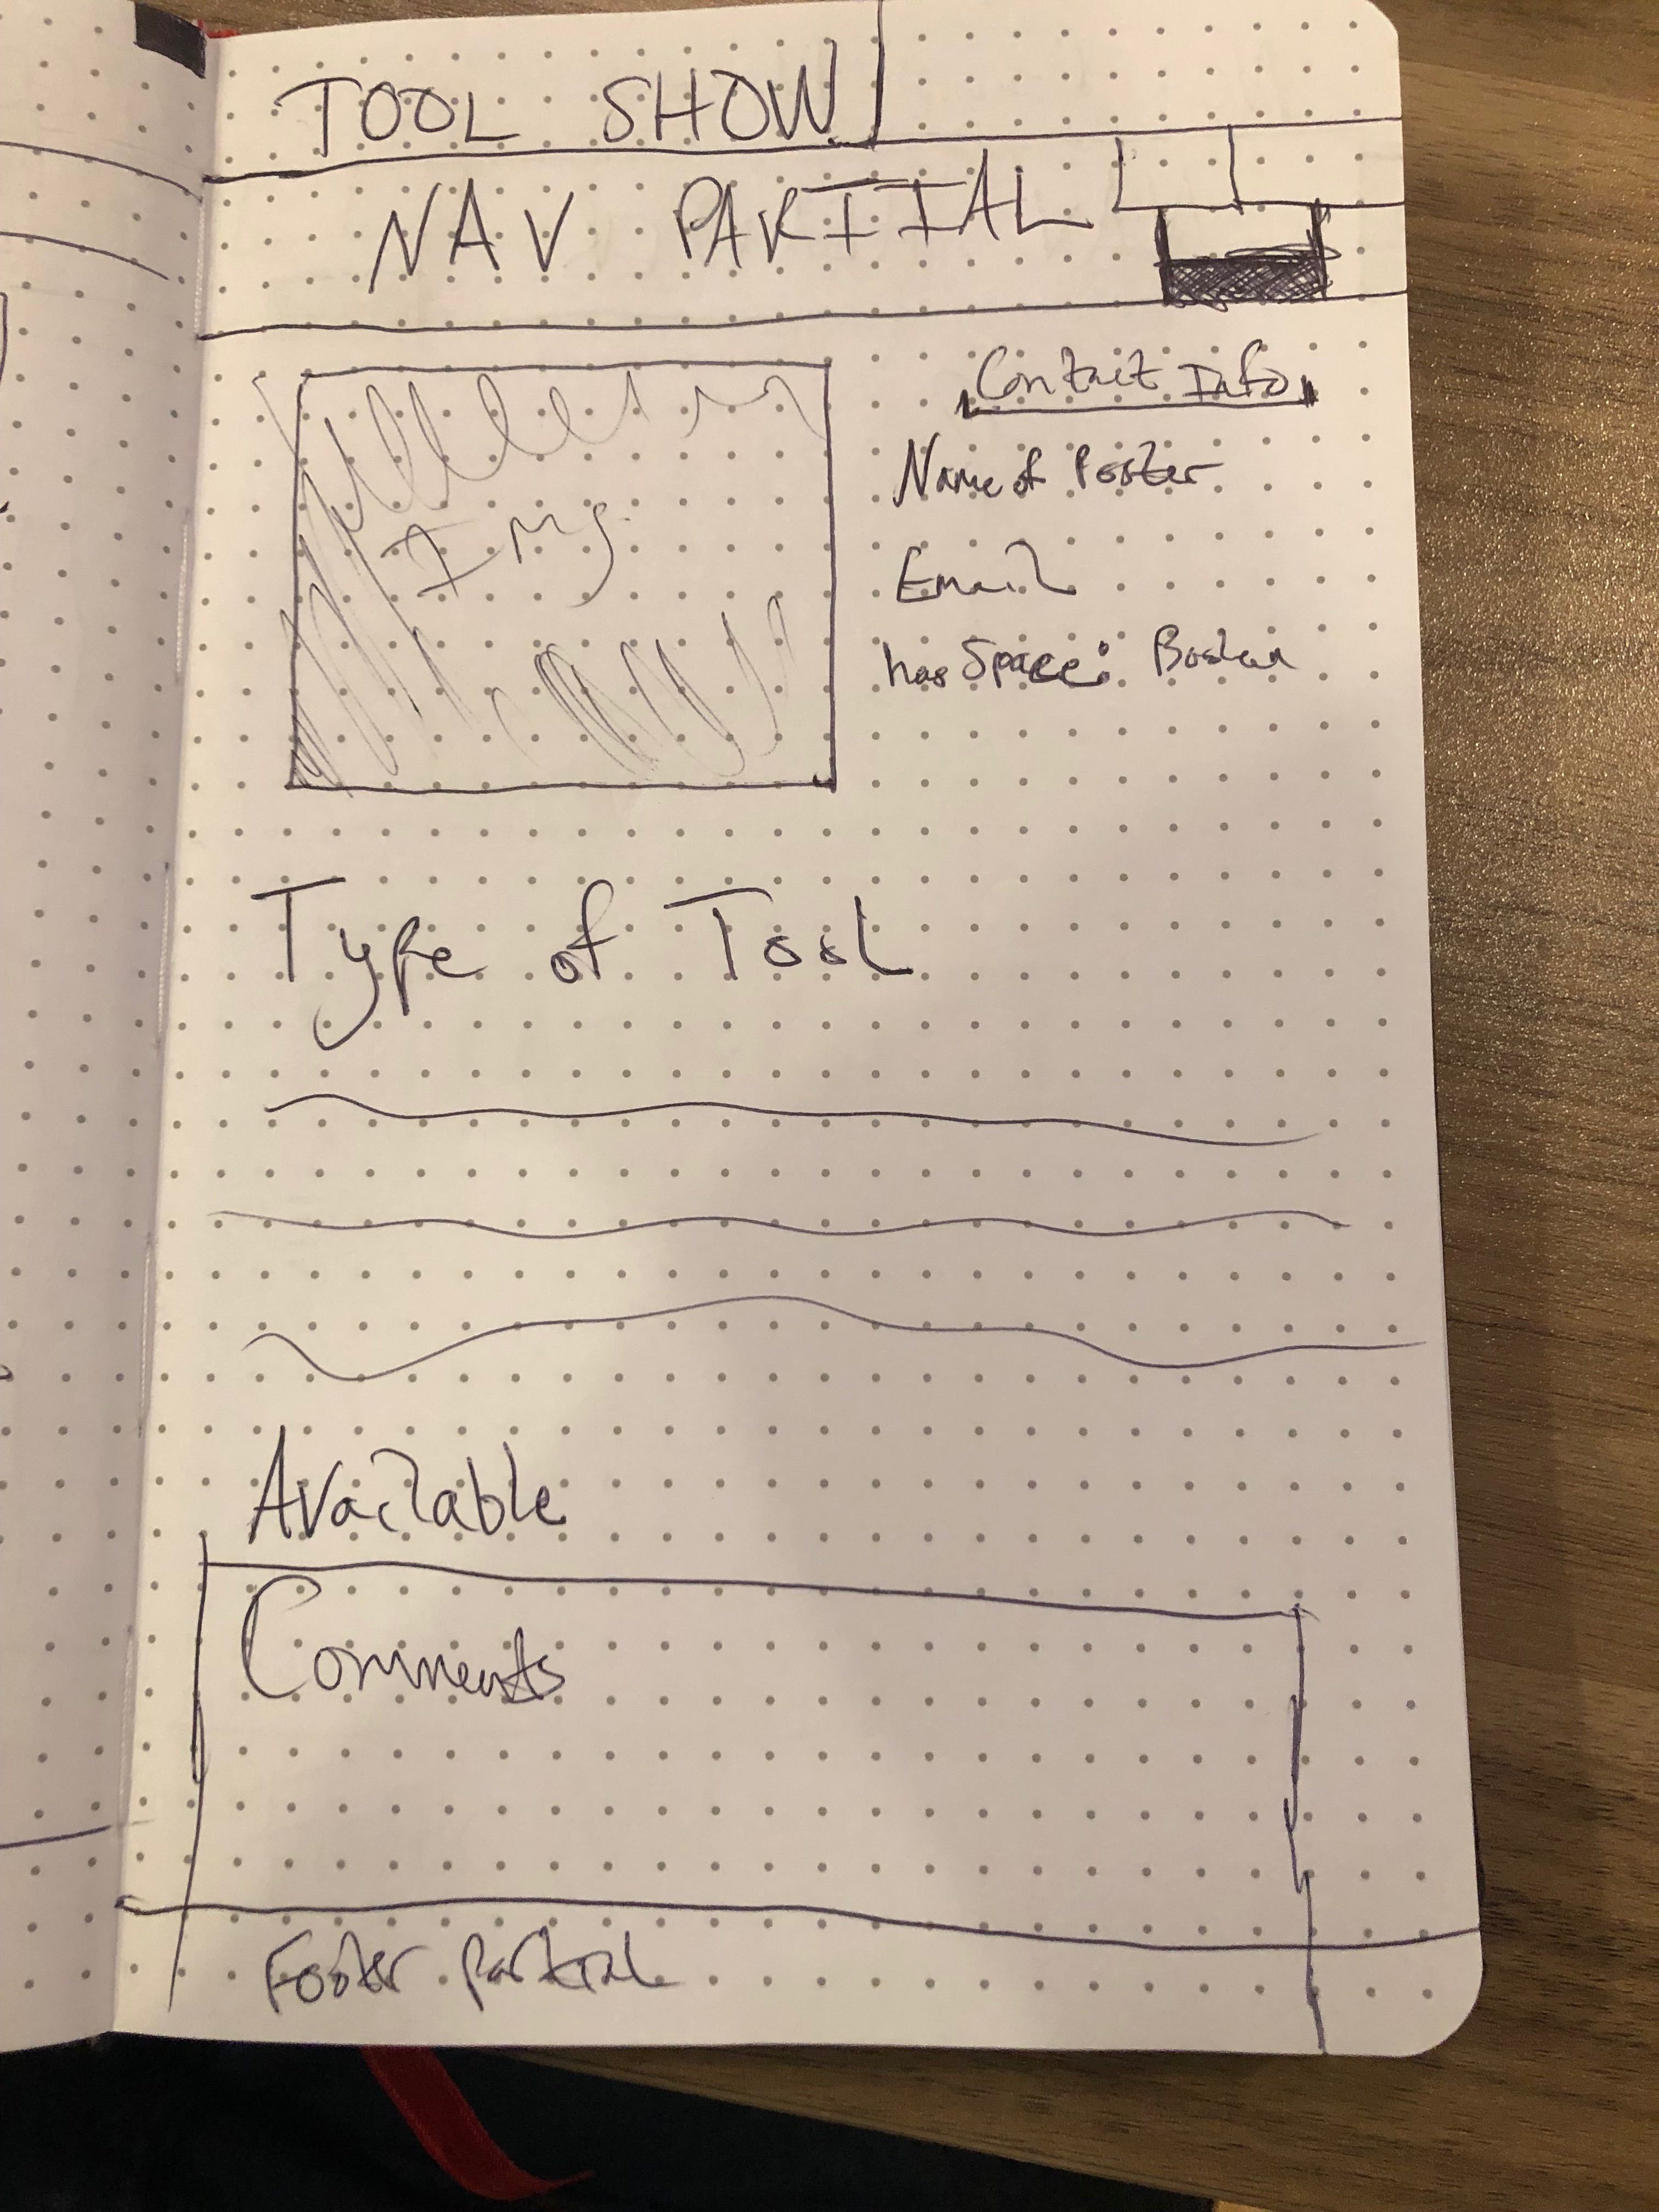 TOOL SHOW
NAV PARTIAL
Img
Contact Info
Name of Poster
Email
has Space: Boolean
Type of Tool
Available
Comments
Footer partial